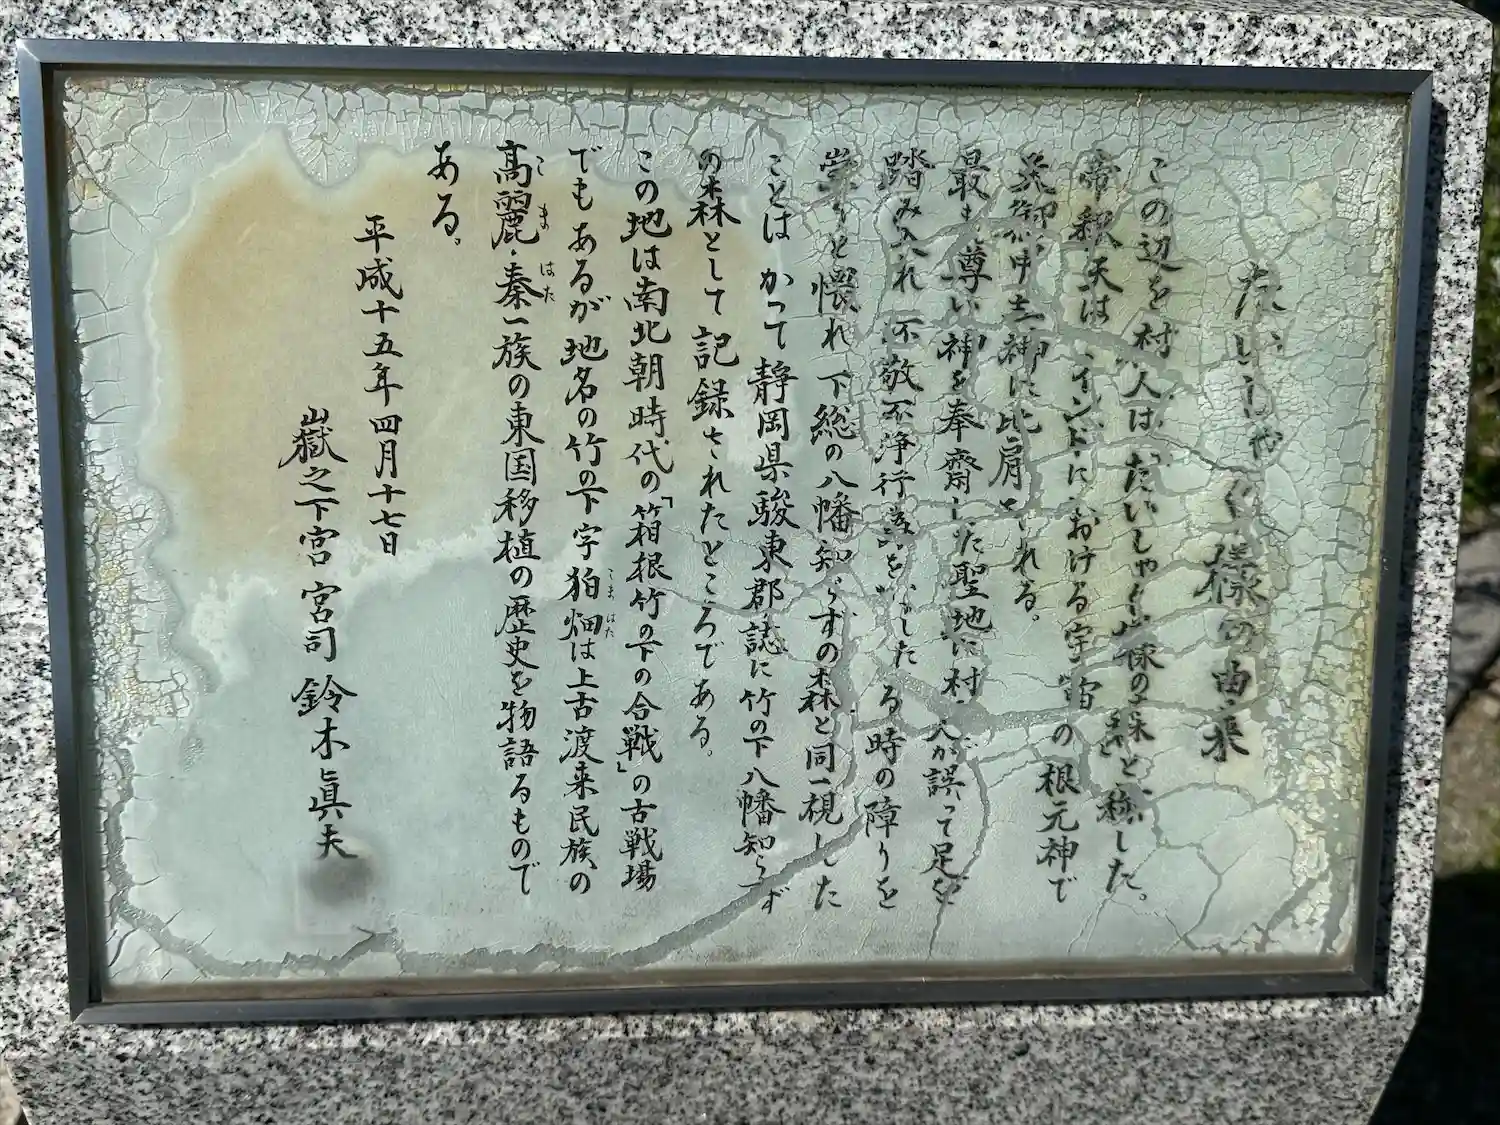 たいしゃく様の由来
この辺を村人は「たいしゃく様の森」と称した。
帝釈天は インドにおける宇宙の根元神で
天御中主神に比肩される。
最も尊い神を奉齋した聖地に村人が誤って足を
踏み入れ 不敬不浄行為をおかしたる時の障りを
祟りと懼れ 下総の八幡知らずの森と同一視した
ことは かつて静岡県駿東郡誌に竹の下八幡知らず
の森として記録されたところである。
この地は南北朝時代の「箱根竹の下の合戦」の古戦場
でもあるが地名の竹の下字狛畑は上古渡来民族の
こまはた
高麗・秦一族の東国移植の歴史を物語るもので
こま はた
ある。
平成十五年四月十七日
嶽之下宮 宮司 鈴木眞夫